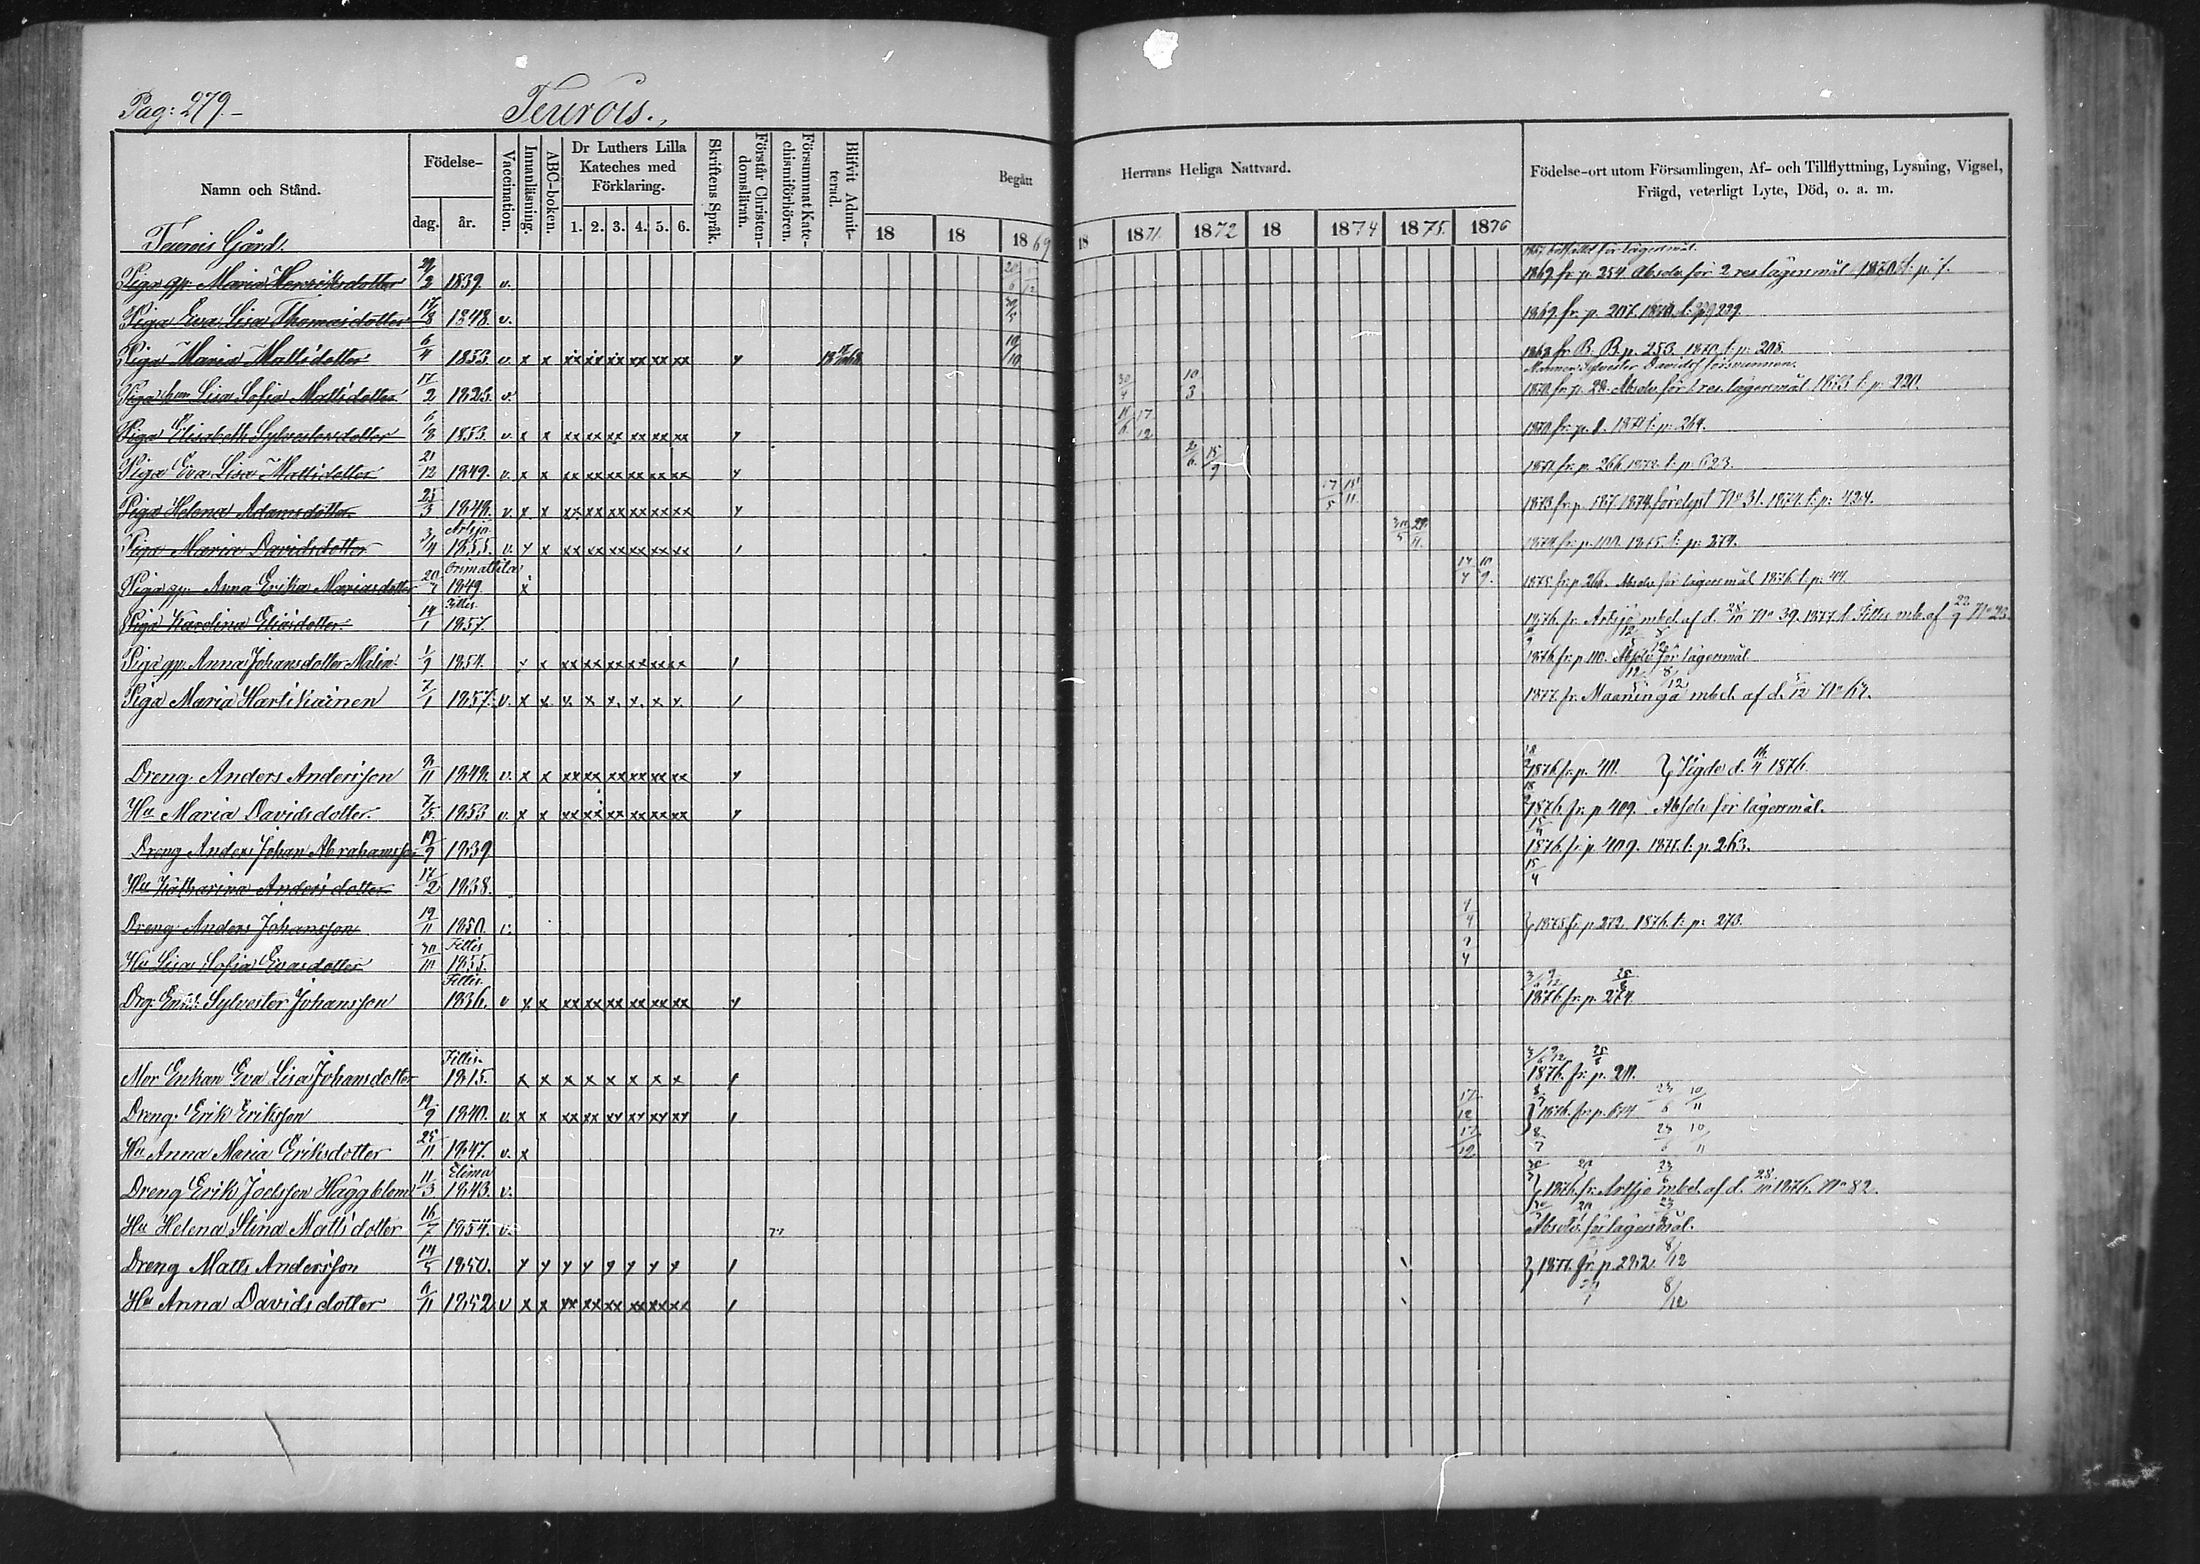 Pag: 279.-
Teurois.
Namn och Stånd.
Födelse-
dag.
år.
Vaccination.
Innanläsning.
ABC-boken.
Dr Luthers Lilla Kateches med Förklaring.
1. 2. 3. 4. 5. 6.
Skriftens Språk.
Förstår Christendomsläran.
Försummat Katechismiförhören.
Blifvit Admitterad.
Begått
Herrans Heliga Nattvard.
18 18 1869 18 1871. 1872 18 1874 1875. 1876
Födelse-ort utom Församlingen, Af- och Tillflyttning, Lysning, Vigsel,
Frägd, veterligt Lyte, Död, o. a. m.
Teurois Gård.
Piga qp. Maria Henriksdotter 2 1839. v. 1869 fr. p. 254. Absolv. för 2 res lägersmål 1870 t. p.
Piga Eva Lisa Thomasdotter 17/8 1848. v. 1869 fr. p. 207. 1870. t. p. 229.
Piga Maria Mattsdotter 6/4 1853. v. x x xx xx xx xx xx xx 1868 fr. B. B. p. 253. 1870. t. p. 208.
Mannen Sylvester Davidsf försvunnen.
Piga Lisa Sofia Mattsdotter 17/2 1823. v. 30/4 10/3 1870. fr. p. 28. Absolv. för 1 res. lägersmål 1873. t. p. 220.
Piga Elisabeth Sylvestersdotter 6/8 1853. v. x x xx xx xx xx xx xx 17/12 1870 fr. p. 1. 1871 t. p. 264.
Piga Eva Lisa Mattsdotter 21/12 1849. v. x x xx xx xx xx xx xx 15/9 1871 fr. p. 266. 1872. t. p. 623.
Piga Helena Adamsdotter 23/3 1848. v. x x xx xx xx xx xx xx 17/5 1873 fr. p. 187. 1874. förelyst No 31. 1874. t. p. 424.
Artsjö
Piga Maria Davidsdotter 3/4 1855. v. x x xx xx xx xx xx xx 1874. fr. p. 100. 1875. t. p. 274.
Orimattila
Piga qp. Anna Erika Mariasdotter 1849. x 1875. fr. p. 266. Absolv. för lägersmål 1876. t. p. 44.
Iittis
Piga Karolina Eliasdotter 14/1 1857. 1876. fr. Artsjö mbet. af d. 28/10 No 39. 1877. t. Iittis mb. af 22/9 No 23.
Piga qp. Anna Johansdotter Malin. 1854. x x xx xx xx xx xx xx 1876. fr. p. 110. Absolv. för lägersmål
Piga Maria Hartikainen 7/1 1857. v. x x x x x x x x 1877. fr. Maaninga mbet. af d. 5/12 No 67.
Dreng. Anders Andersson 2/11 1848. v. x x xx xx xx xx xx xx 1876 fr. p. 411. } Vigde d. 16/4 1876.
Hu Maria Davidsdotter. 7/5. 1853 v. x x xx xx xx xx xx xx 1876. fr. p. 409. Absolv. för lägersmål.
Dreng Anders Johan Abrahamsson 19/9 1839 1876. fr. p. 409. 1877. t. p. 263.
Hu Katharina Andersdotter 17/2 1838. 15/4
Dreng. Anders Johansson 19/11 1850. v. } 1875 fr. p. 272. 1876. t. p. 273.
Iittis
Hu Lisa Sofia Evasdotter 1855.
Iittis.
Drg. Enkl. Sylvester Johansson 1836. v x x xx xx xx xx xx xx 1876. fr. p. 274.
Iittis.
Mor Enkan Eva Lisa Johansdotter 1815. x x x x x x x x 1876. fr. p. 211.
Dreng. Erik Eriksson 19/9 1840. v. x x xx xx xx xx xx xx 17/12 } 1876. fr. p. 23/6 10/11
Hu Anna Maria Eriksdotter 25/11 1847. v. x 17/12 23/6 10/11
Elimä
Dreng Erik Joelsson Häggblom 11/3 1843. v. } 1876. fr. Artsjö mbet. af d. 28/10 1876. No 82.
Hu Helena Stina Mattsdotter 16/7 1854. v. Absolv. för lägersmål.
Dreng Matts Andersson 14/5 1850. } 1877. fr. p. 232. 8/12
Hu Anna Davidsdotter 6/11 1852 v x x xx xx xx xx xx xx 8/12